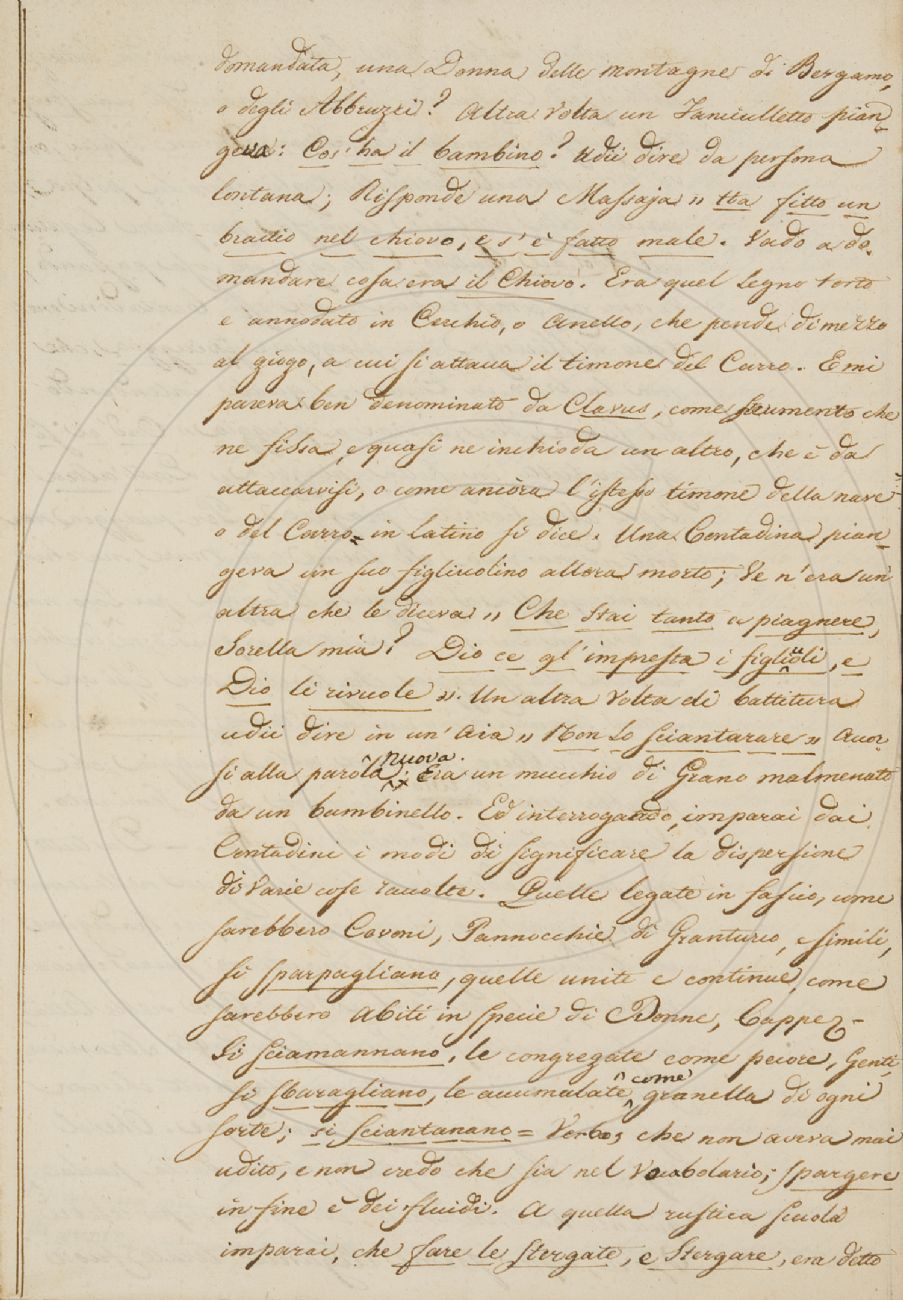 domandata, una Donna delle montagne di Bergamo,
o degli Abbruzzi? Altra volta un Fanciulletto pian-
geva: Cos' ha il bambino? udii dire da persona
lontana; Risponde una Massaja " Ha fitto un
braccio nel chiovo, e s' è fatto male. Vado a do-
mandare cosa era il Chiovo. Era quel Legno torto
e annodato in Cerchio, o Anello, che pende di mezzo
al giogo, a cui si attacca il timone del Carro. E mi
pareva ben denominato da Clavus, come strumento che
ne fissa, e quasi ne inchioda un altro, che è da
attaccarvisi, o come ancora l'istesso timone della nave
o del Carro = in latino si dice. Una Contadina pian-
geva un suo figliuolino allora morto; Ve n'era un'
altra che le diceva " Che stai tanto a piagnere,
Sorella mia? Dio ce gl' impresta i figliuoli, e
Dio li rivuole ". Un altra volta di battitura
udii dire in un' Aia " Non lo sciantarare " Accor-
si alla parola nuova. Era un mucchio di Grano malmenato
da un bambinello. Ed interrogando, imparai dai
Contadini i modi di significare la dispersione
di varie cose raccolte. Quelle legate in fascio, come
sarebbero Covoni, Pannocchie di Granturco, e simili,
si sparpagliano, quelle unite e continue, come
sarebbero Abiti in specie di Donne, Cappe
si sciamannano, le congregate come pecore, Genti,
si sbaragliano, le accumulate come granella di ogni
sorte; si sciantanano = Verbo; che non aveva mai
udito, e non credo che sia nel Vocabolario; spargere
in fine è dei fluidi. A quella rustica scuola
imparai, che fare le stergate, e Stergare, era detto